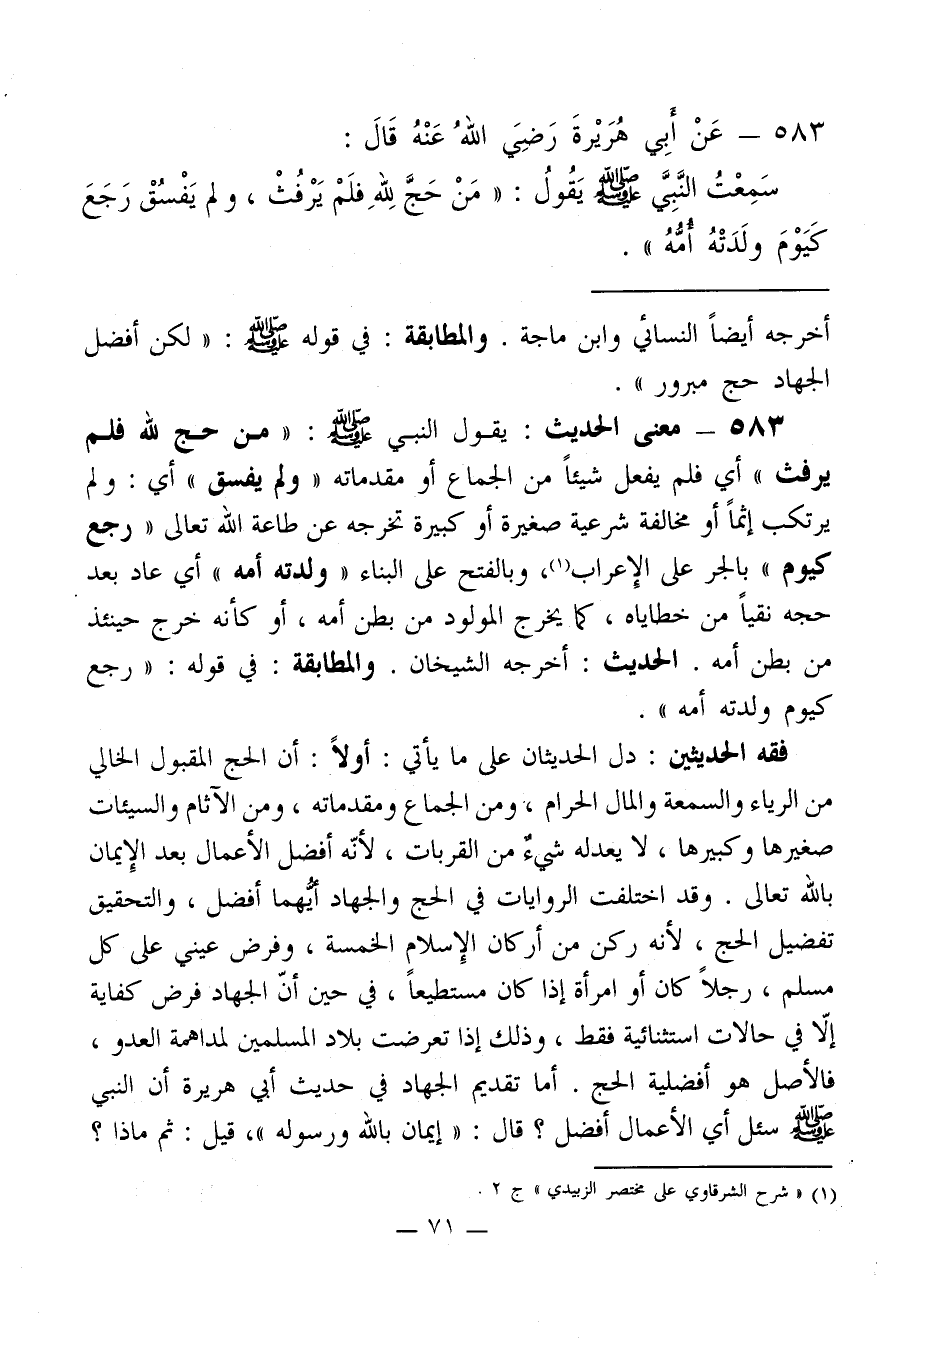 ٥٨٣ – عَنْ أَبِي هُرَيْرةَ رَضِيَ اللهُ عَنْهُ قَالَ :
سَمِعْتُ النَّبِيَّ ﷺ يَقُولُ : « مَنْ حَجَّ لِلّهِ فلَمْ يَرْفُثْ ، ولم يَفْسُقْ رَجَعَ
كَيَوْمَ ولَدَتْهُ أُمُّهُ » .
أخرجه أيضاً النسائي وابن ماجة . والمطابقة : في قوله ﷺ : « لكن أفضل
الجهاد حج مبرور » .
٥٨٣ – معنى الحديث : يقول النبي ﷺ : « من حج لله فلم
يرفث » أي فلم يفعل شيئاً من الجماع أو مقدماته « ولم يفسق » أي : ولم
يرتكب إثماً أو مخالفة شرعية صغيرة أو كبيرة تخرجه عن طاعة الله تعالى « رجع
كيوم » بالجر على الإعراب(١)، وبالفتح على البناء « ولدته أمه » أي عاد بعد
حجه نقياً من خطاياه ، كما يخرج المولود من بطن أمه ، أو كأنه خرج حينئذ
من بطن أمه . الحديث : أخرجه الشيخان . والمطابقة : في قوله : « رجع
كيوم ولدته أمه » .
فقه الحديثين : دل الحديثان على ما يأتي : أولاً : أن الحج المقبول الخالي
من الرياء والسمعة والمال الحرام ، ومن الجماع ومقدماته ، ومن الآثام والسيئات
صغيرها وكبيرها ، لا يعدله شيءٌ من القربات ، لأنّه أفضل الأعمال بعد الإيمان
بالله تعالى . وقد اختلفت الروايات في الحج والجهاد أيُّهما أفضل ، والتحقيق
تفضيل الحج ، لأنه ركن من أركان الإسلام الخمسة ، وفرض عيني على كل
مسلم ، رجلاً كان أو امرأة إذا كان مستطيعاً ، في حين أنّ الجهاد فرض كفاية
إلّا في حالات استثنائية فقط ، وذلك إذا تعرضت بلاد المسلمين لمداهمة العدو ،
فالأصل هو أفضلية الحج . أما تقديم الجهاد في حديث أبي هريرة أن النبي
ﷺ سئل أي الأعمال أفضل ؟ قال : « إيمان بالله ورسوله »، قيل : ثم ماذا ؟
(١) « شرح الشرقاوي على مختصر الزبيدي » ج ٢ .
– ٧١ –